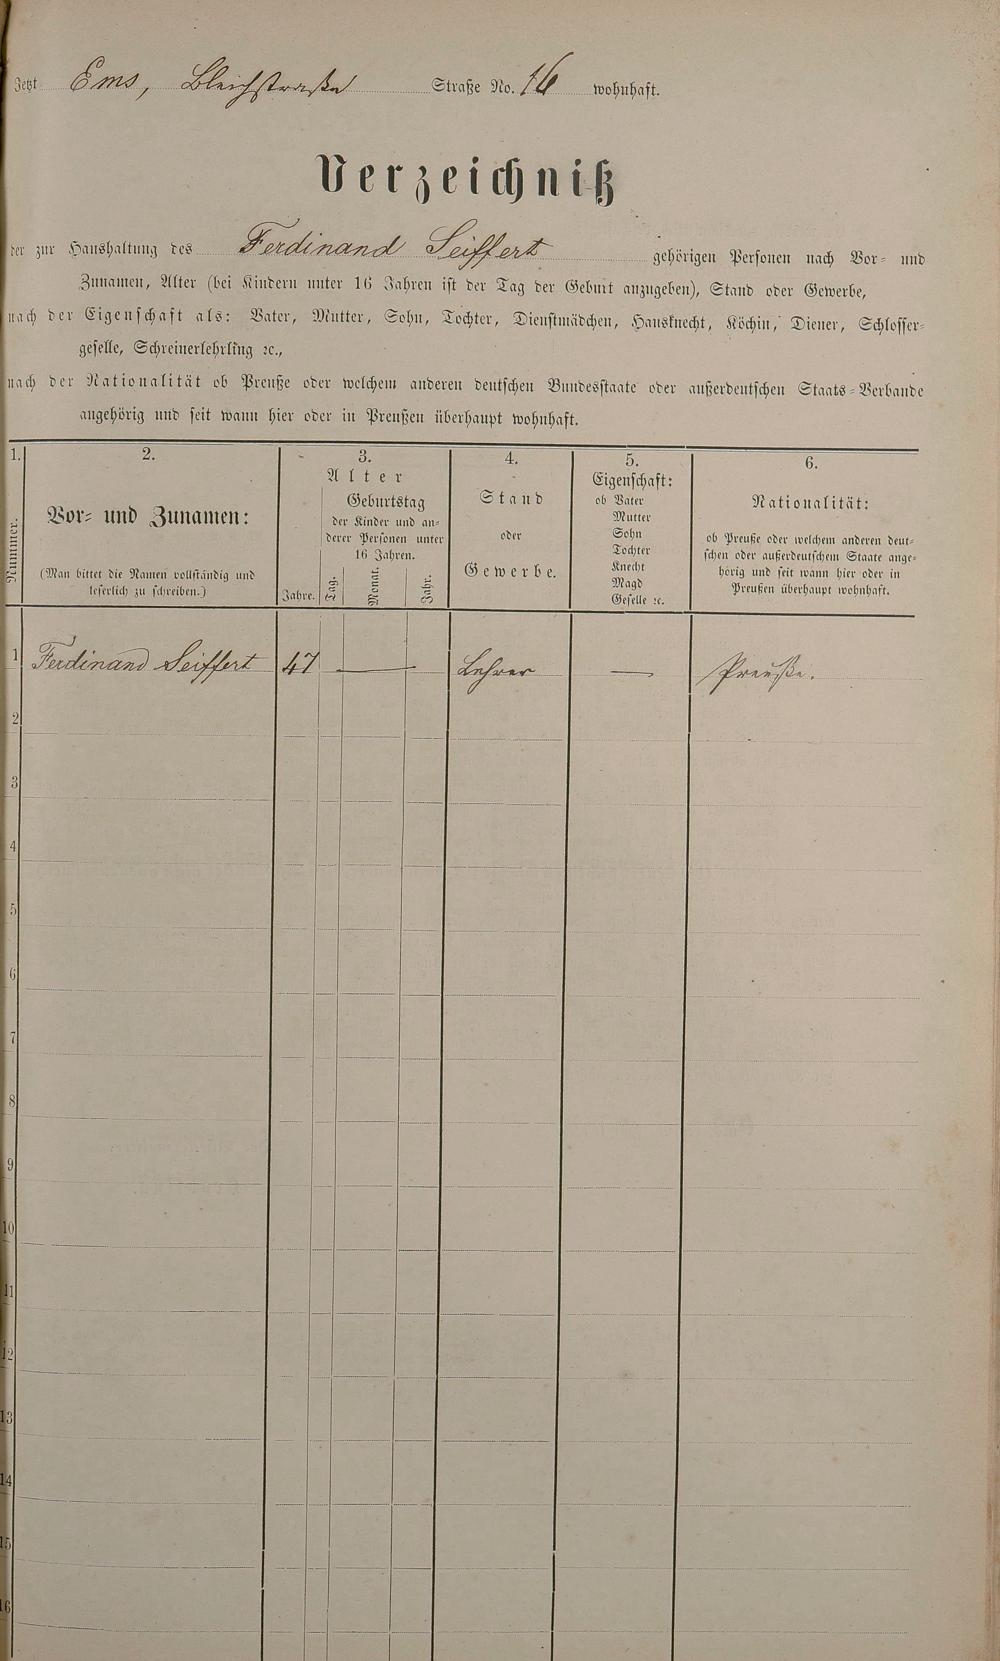 Jetzt Ems, Bleichstraße Straße No. 16 wohnhaft.
Verzeichniß
der zur Haushaltung des Ferdinand Seiffert gehörigen Personen nach Vor- und
Zunamen, Alter (bei Kindern unter 16 Jahren ist der Tag der Geburt anzugeben), Stand oder Gewerbe,
nach der Eigenschaft als: Vater, Mutter, Sohn, Tochter, Dienstmädchen, Hausknecht, Köchin, Diener, Schlosser-
geselle, Schreinerlehrling ꝛc.,
nach der Nationalität ob Preuße oder welchem anderen deutschen Bundesstaate oder außerdeutschen Staats-Verbande
angehörig und seit wann hier oder in Preußen überhaupt wohnhaft.
1.
Nummer.
2.
Vor- und Zunamen:
(Man bittet die Namen vollständig und
leserlich zu schreiben.)
3.
Alter
Geburtstag
der Kinder und an-
derer Personen unter
16 Jahren.
Jahre. Tag. Monat. Jahr.
4.
Stand
oder
Gewerbe.
5.
Eigenschaft:
ob Vater
Mutter
Sohn
Tochter
Knecht
Magd
Geselle ꝛc.
6.
Nationalität:
ob Preuße oder welchem anderen deut-
schen oder außerdeutschem Staate ange-
hörig und seit wann hier oder in
Preußen überhaupt wohnhaft.
1 Ferdinand Seiffert 47 — Lehrer — Preuße.
2
3
4
5
6
7
8
9
10
11
12
13
14
15
16